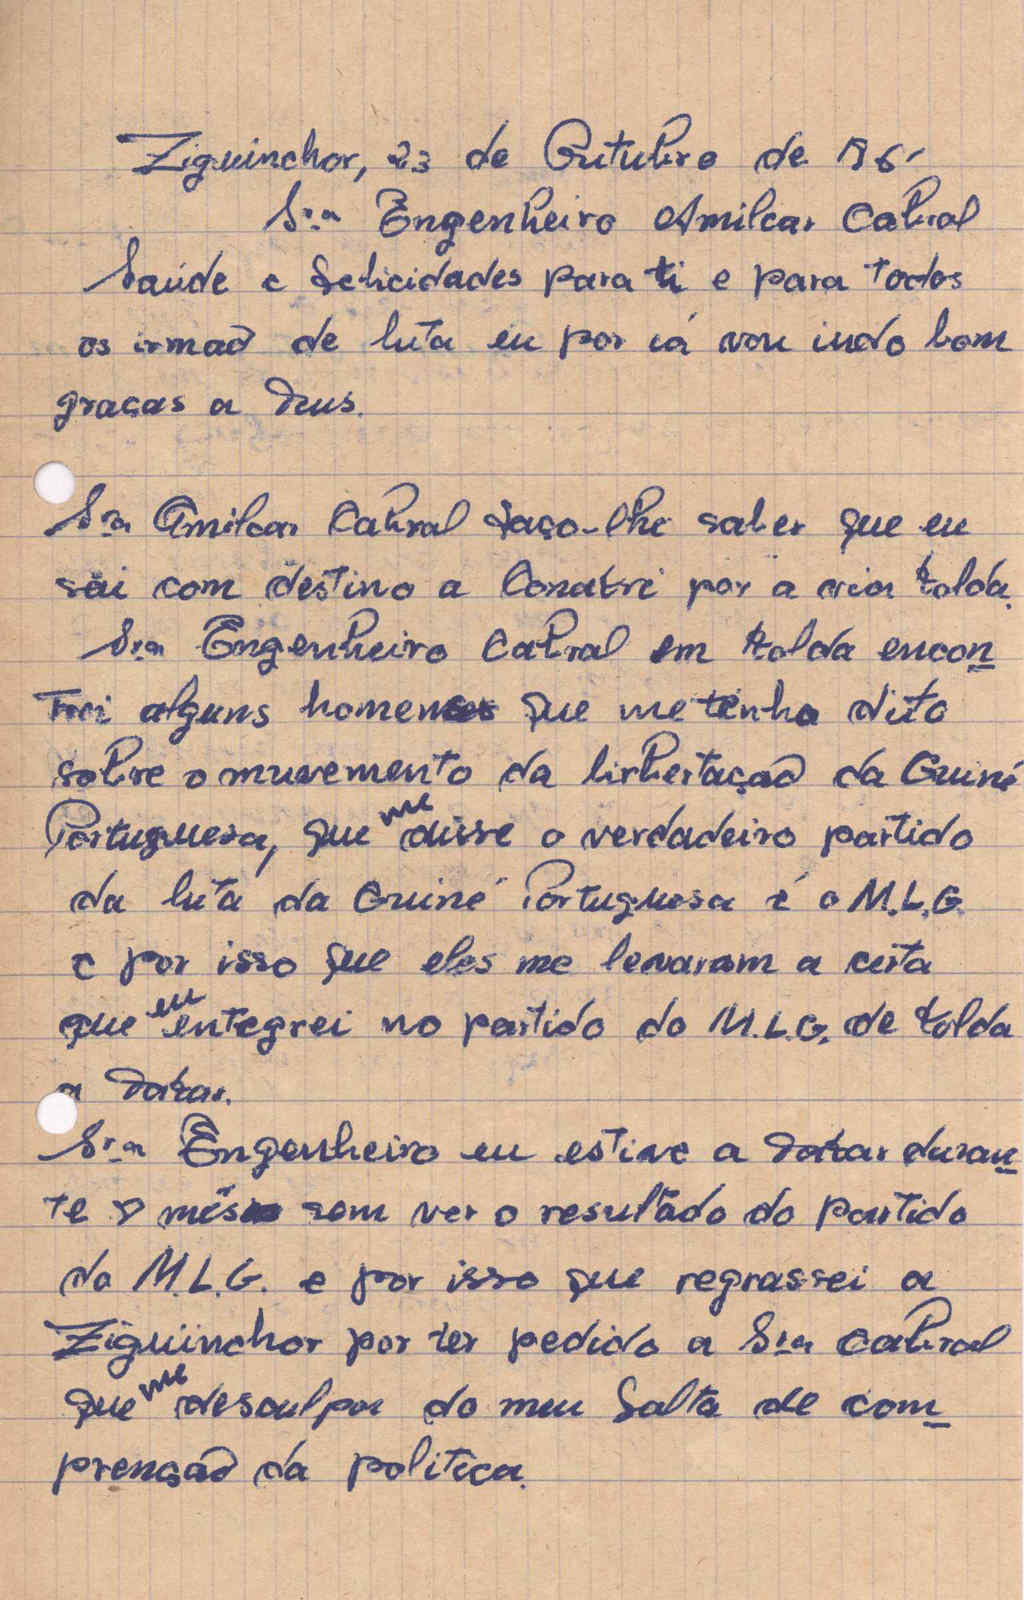 Ziguinchor, 23 de Outubro de 196
Sra Engenheiro Amilcar Cabral
Saúde e felicidades para ti e para todos
os irmaõ de luta eu por cá vou indo bom
graças a Deus.
Sra Amilcar Cabral faço-lhe saber que eu
sai com destino a Conakri por a via kolda.
Sra Engenheiro Cabral em kolda encon
trei alguns homens que me tenha dito
sobre o muvemento da lirbertaçaõ da Guiné
Portuguesa, que me disse o verdadeiro partido
da luta da Guiné Portuguesa é o M.L.G.
e por isso que eles me levaram a certa
que eu entegrei no partido do M.L.G. de kolda
a Dakar.
Sra Engenheiro eu estive a Dakar duran
te mês sem ver o resultado do partido
do M.L.G. e por isso que regrassei a
Ziguinchor por ter pedido a Sra Cabral
que me desculpa do meu falta de com
prençaõ da politica.